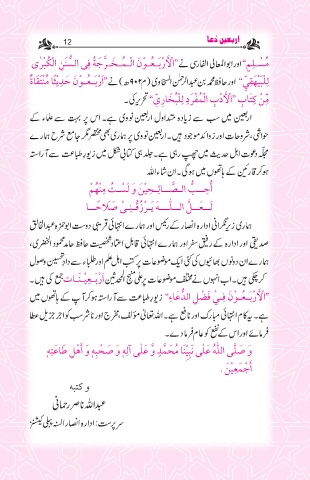 12 اربعین دُعا
مُسْلِمٍ“ اور ابو المعالی الفارسی نے ”اَلْأَرْبَعُوْنَ الْمُخَرَّجَةُ فِی السُّنَنِ الْكُبْرٰی
لِلْبَيْهَقِيِّ“ اور حافظ محمد بن عبدالرحمٰن السخاوی (م۹۰۲ھ) نے ”اَرْبَعُوْنَ حَدِيْثًا مُنْتَقَاةً
مِّنْ كِتَابِ ”الْأَدَبِ الْمُفْرَدِ لِلْبُخَارِيِّ“ تحریر کی۔
اربعین میں سب سے زیادہ متداول اربعین نووی ہے۔ اس پر بہت سے علماء کے
حواشی، شروحات اور زوائد موجود ہیں۔ اربعین نووی پر ہماری بھی مختصر مگر جامع شرح ہمارے
مجلّہ دعوت اہل حدیث میں چھپ رہی ہے۔ جلد ہی کتابی شکل میں زیور طباعت سے آراستہ
ہو کر قارئین کے ہاتھوں میں ہوگی۔ ان شاء اللہ
أُحِبُّ الصَّالِحِيْنَ وَ لَسْتُ مِنْهُمْ
لَعَلَّ اللهَ يَرْزُقُنِيْ صَلَاحًا
ہماری زیر نگرانی ادارہ انصار کے رئیس اور ہمارے انتہائی قریبی دوست ابو حمزہ عبدالخالق
صدیقی اور ادارہ کے رفیق سفر اور ہمارے انتہائی قابل اعتماد شخصیت حافظ حامد محمود الخضری،
ہمارے ان دونوں بھائیوں کی کئی ایک موضوعات پر کتب اہل علم اور طلباء سے داد تحسین وصول
کر چکی ہیں۔ اب انہوں نے مختلف موضوعات پر علی منہج المحدثین اَرْبَعِيْنَات جمع کی ہیں۔
”اَلْأَرْبَعُوْنَ فِيْ فَضْلِ الدُّعَاءِ“ زیور طباعت سے آراستہ ہو کر آپ کے ہاتھوں میں
ہے۔ یہ کام انتہائی مبارک اور نافع ہے۔ اللہ تعالیٰ مؤلف، مخرج اور ناشر سب کو اجر جزیل عطا
فرمائے اور اس کے نفع کو عام فرما دے۔
وَ صَلَّی اللهُ عَلٰی نَبِيِّنَا مُحَمَّدٍ وَّ عَلٰی آلِهٖ وَ صَحْبِهٖ وَ أَهْلِ طَاعَتِهٖ
أَجْمَعِيْنَ .
و كتبه
عبداللہ ناصر رحمانی
سرپرست: ادارہ انصار السنہ پبلی کیشنز